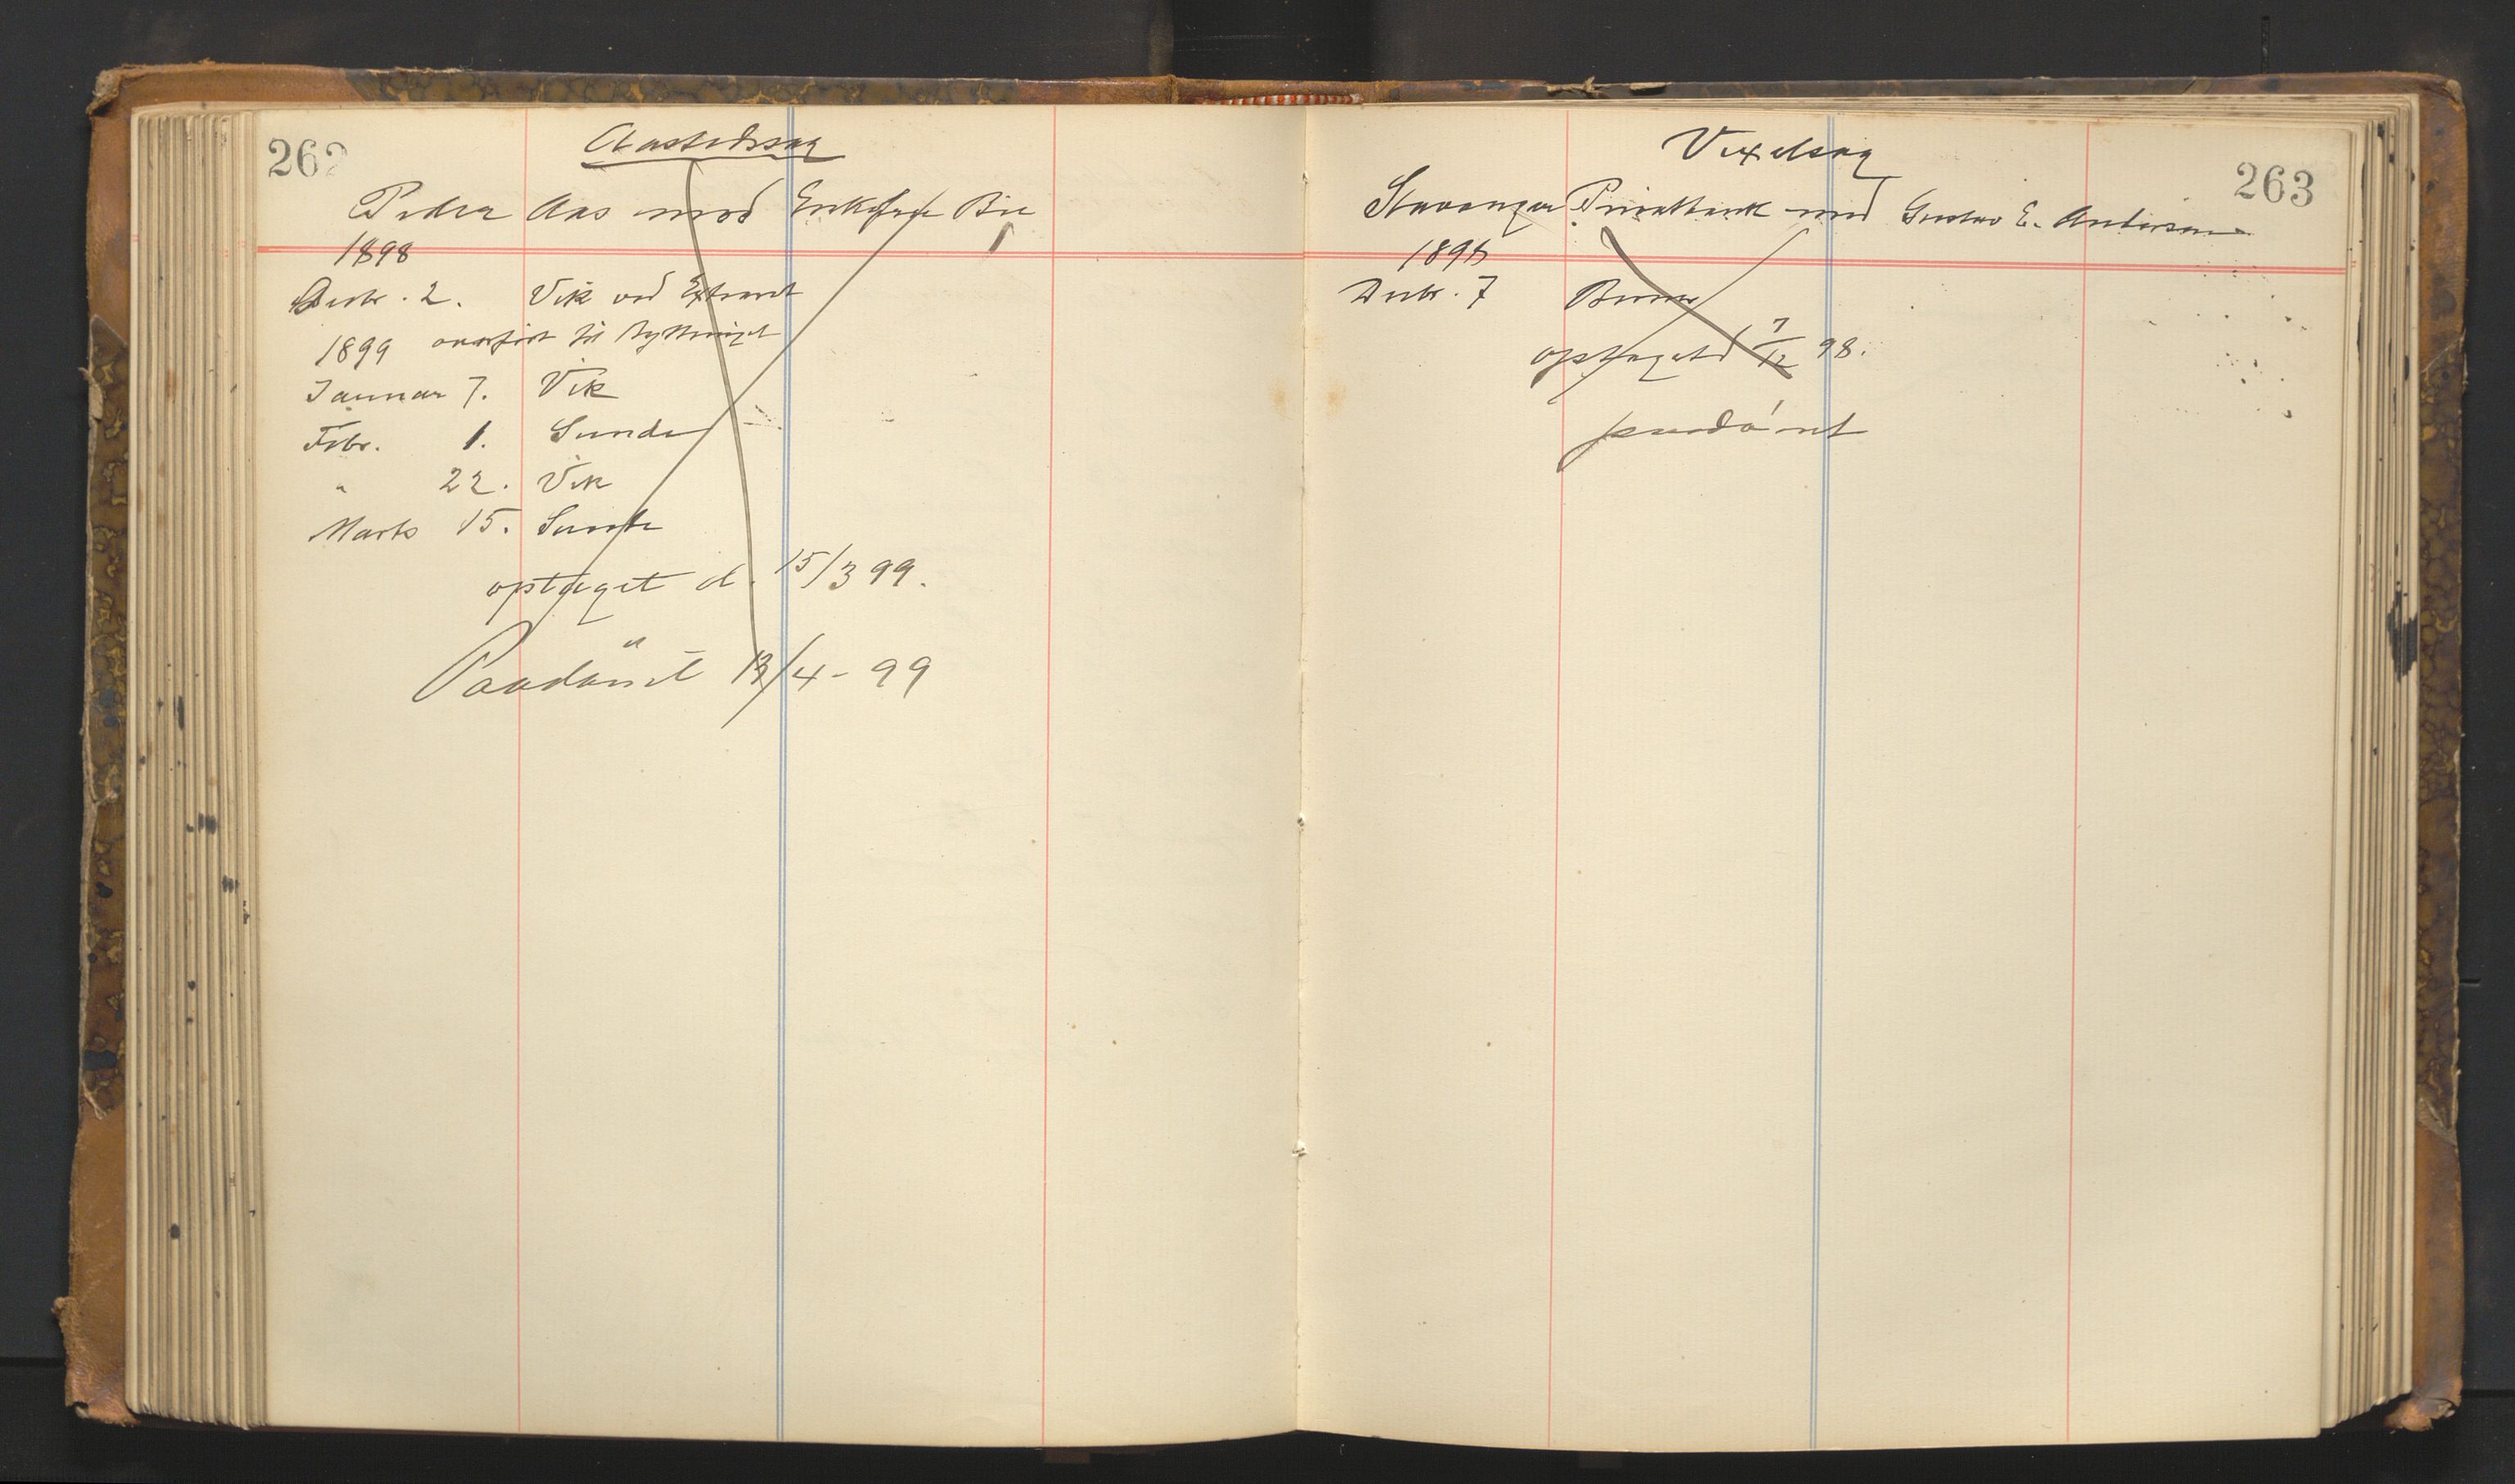 262
Aastedssag
Peder Aas mod Enkefru Bie
1898
Decbr. 2. Vik ved Extraret
1899 overført til
Januar 7. Vik
Febr. 1. Sunde
" 22. Vik
Marts 15. Sunde
optaget d. 15/3 99.
Paadömt 13/4 - 99
263
Vexelsag
Stavanger Privatbank mod Gustav E. Andersen
1898
Decbr. 7
optaget d 7/12 98.
paadømt